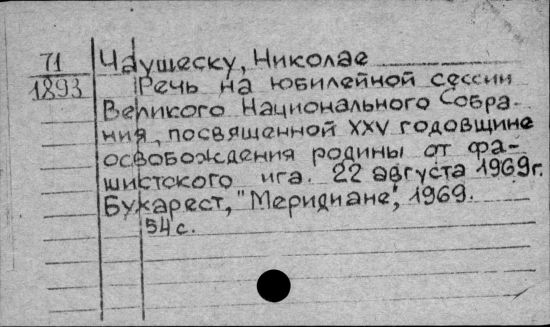 71 Чаушеску, Николае
1893 Речь на юбилейной сессии
Великого Национального Собра-
ния, посвященной XXV годовщине
освобождения родины от фа-
шистского ига. 22 августа 1969г.
Бухарест, "Меридиане", 1969.
54 с.